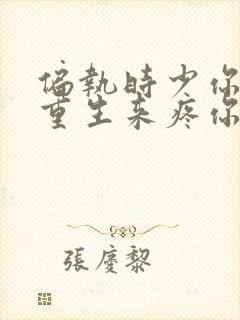 偏執時少你
重生来疼你
張慶黎